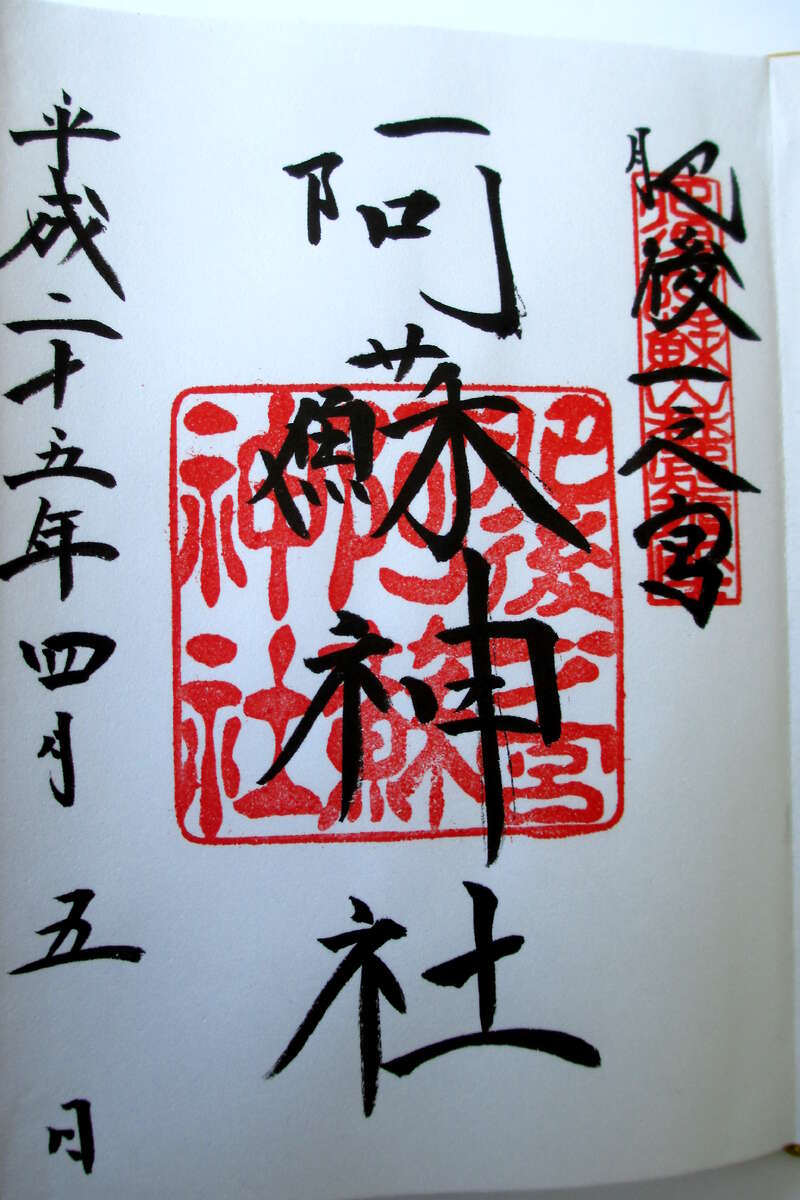 肥後一之宮
阿蘇神社
平成二十五年四月五日
肥後一宮
阿蘇
神社